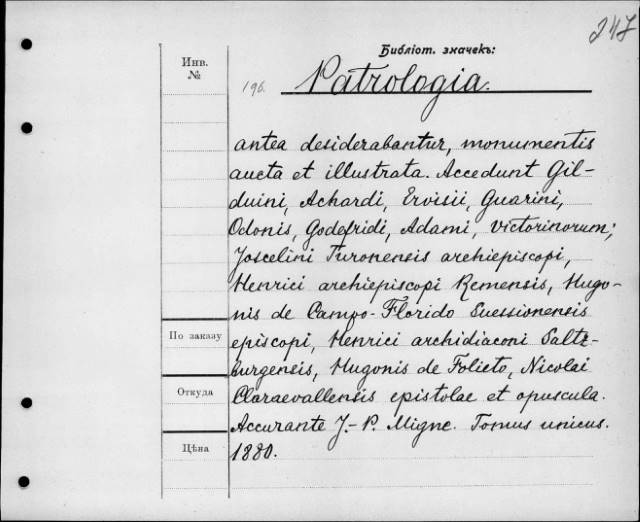 247
Библіот. значекъ:
Инв.
№
196.
Patrologia.
antea desiderabantur, monumentis
aucta et illustrata. Accedunt Gil-
duini, Achardi, Ervisii, Guarini,
Odonis, Godefridi, Adami, Victorinorum;
Joscelini Turonensis archiepiscopi,
Henrici archiepiscopi Remensis, Hugo-
nis de Campo-Florido Suessionensis
По заказу
episcopi, Henrici archidiaconi Saltz-
burgensis, Hugonis de Folieto, Nicolai
Откуда
Claraevallensis epistolae et opuscula.
Accurante J.-P. Migne. Tomus unicus.
Цѣна
1880.